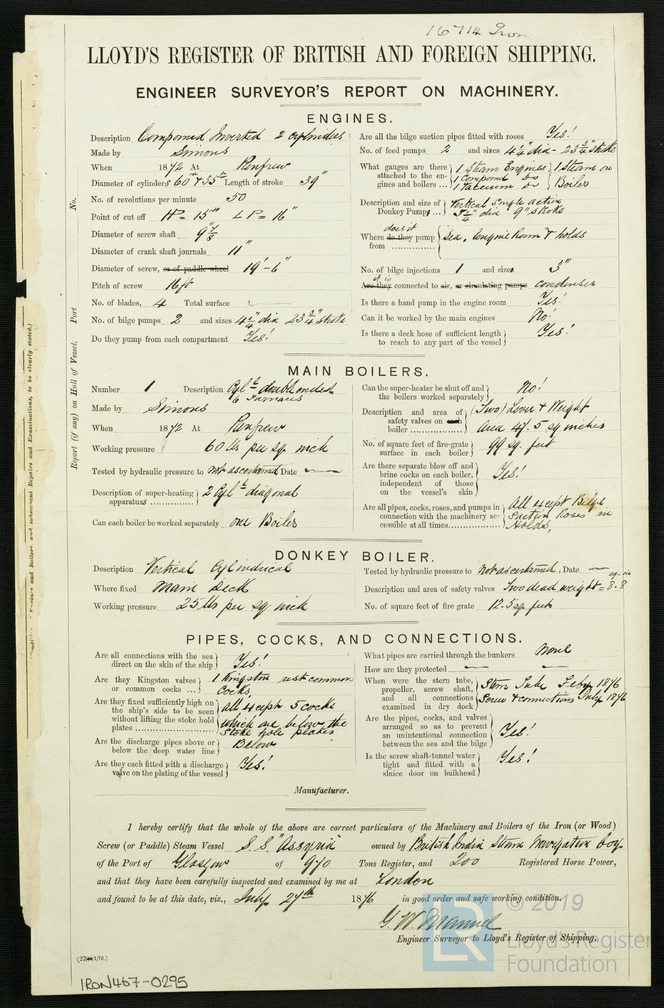 16714 Iron
LLOYD'S REGISTER OF BRITISH AND FOREIGN SHIPPING.
ENGINEER SURVEYOR'S REPORT ON MACHINERY.
ENGINES.
Description Compound Inverted 2 cylinders
Made by Simons
When 1872 At Renfrew
Diameter of cylinders 60" & 35" Length of stroke 39"
No. of revolutions per minute 50
Point of cut off HP = 15" LP = 16"
Diameter of screw shaft 9 7/8"
Diameter of crank shaft journals 11"
Diameter of screw, or of paddle wheel 19'-6"
Pitch of screw 16ft
No. of blades, 4 Total surface
No. of bilge pumps 2 and sizes 4 1/4" dia 23 3/4" stroke
Do they pump from each compartment Yes!
Are all the bilge suction pipes fitted with roses Yes!
No. of feed pumps 2 and sizes 4 1/4" dia - 23 3/4" stroke
What gauges are there attached to the engines and boilers ... 1 Steam Engines 1 Compound Do 1 Vacuum Do 1 Steam on Boiler
Description and size of Donkey Pump ... Vertical Single action 5 1/4" dia 9" stroke
Where does it do they pump from Sea, Engine Room & holds
No. of bilge injections 1 and sizes 3"
Are they is it connected to air, or circulating pumps condenser
Is there a hand pump in the engine room Yes!
Can it be worked by the main engines No!
Is there a deck hose of sufficient length to reach to any part of the vessel Yes!
MAIN BOILERS.
Number 1 Description Cyl double ended 6 Furnaces
Made by Simons
When 1872 At Renfrew
Working pressure 60 lbs per sq. inch
Tested by hydraulic pressure to not ascertained Date
Description of super-heating apparatus 2 Cyl diagonal
Can each boiler be worked separately one Boiler
Can the super-heater be shut off and the boilers worked separately No!
Description and area of safety valves on each boiler Two/Lever & Weight Area 47.5 sq inches
No. of square feet of fire-grate surface in each boiler 99 sq. feet
Are there separate blow off and brine cocks on each boiler, independent of those on the vessel's skin Yes!
Are all pipes, cocks, roses, and pumps in connection with the machinery accessible at all times All except Bilge Suction Roses in Holds,
DONKEY BOILER.
Description Vertical Cylindrical
Where fixed Main Deck
Working pressure 25 lbs per sq inch
Tested by hydraulic pressure to not ascertained. Date
Description and area of safety valves Two dead weight = 8.8 sq. in
No. of square feet of fire grate 12.5 sq. feet
PIPES, COCKS, AND CONNECTIONS.
Are all connections with the sea direct on the skin of the ship Yes!
Are they Kingston valves or common cocks ... 1 Kingston rest common Cocks,
Are they fixed sufficiently high on the ship's side to be seen without lifting the stoke hold plates all except 5 cocks which are below the Stoke hole plates
Are the discharge pipes above or below the deep water line Below
Are they each fitted with a discharge valve on the plating of the vessel Yes!
What pipes are carried through the bunkers None
How are they protected
When were the stern tube, propeller, screw shaft, and all connections examined in dry dock Stern Tube Feby 1876 Screw & connections July 1876
Are the pipes, cocks, and valves arranged so as to prevent an unintentional connection between the sea and the bilge Yes!
Is the screw shaft-tunnel water tight and fitted with a sluice door on bulkhead Yes!
Manufacturer.
I hereby certify that the whole of the above are correct particulars of the Machinery and Boilers of the Iron (or Wood)
Screw (or Paddle) Steam Vessel S.S. "Assyria" owned by British India Steam Navigation Coy.
of the Port of Glasgow of 970 Tons Register, and 200 Registered Horse Power,
and that they have been carefully inspected and examined by me at London
and found to be at this date, viz., July 27th 1876 in good order and safe working condition.
Engineer Surveyor to Lloyd's Register of Shipping.
IRON467-0295
No.
Port
Report (if any) on Hull of Vessel.
© 2019
Lloyd's Register
Foundation